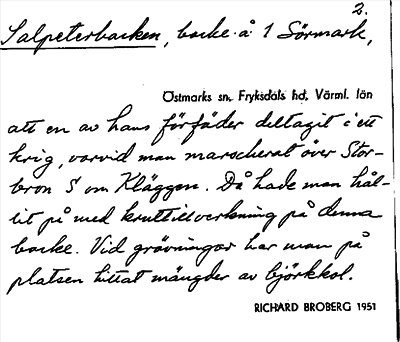 2.
Salpeterbacken, backe å 1 Sörmark,
Östmarks sn, Fryksdals hd, Värml. län
att en av hans förfäder deltagit i ett
krig, varvid man marscherat över Stor-
bron S om Kläggen. Då hade man hål-
lit på med kruttillverkning på denna
backe. Vid grävningar har man på
platsen hittat mängder av björkkol.
RICHARD BROBERG 1951